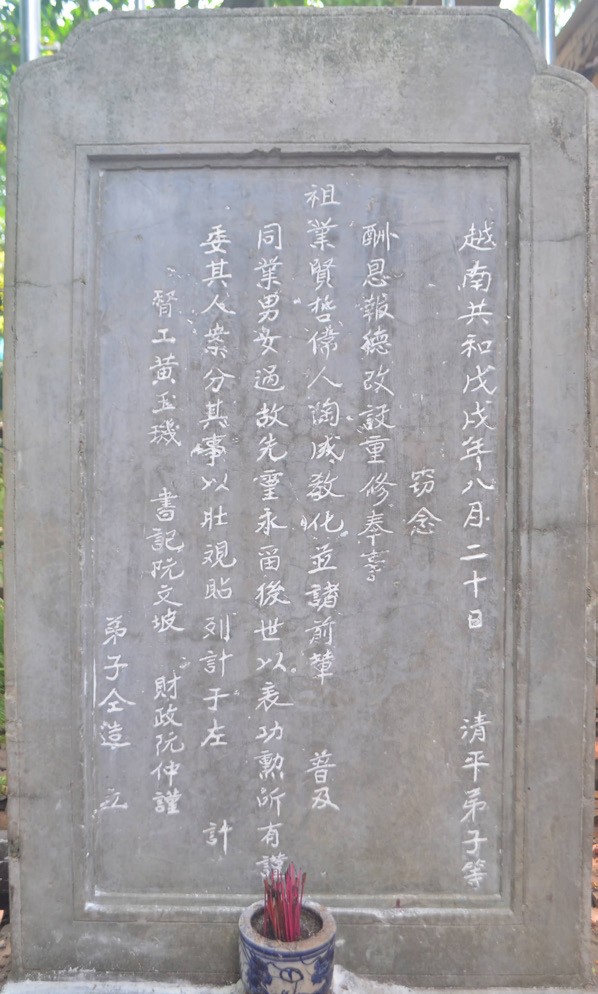 越南共和戊戌年八月二十日 清平弟子等
窃念
酬恩報德改設重修奉事
祖業賢哲儅人陶成教化並諸前輩 普及
同業男女過故先靈永留後世以表功勲所有謹
委其人案分其事以壯观貼列計于左 計
督工黄玉璣 書記阮文坡 財政阮仲謹
弟子仝造 立